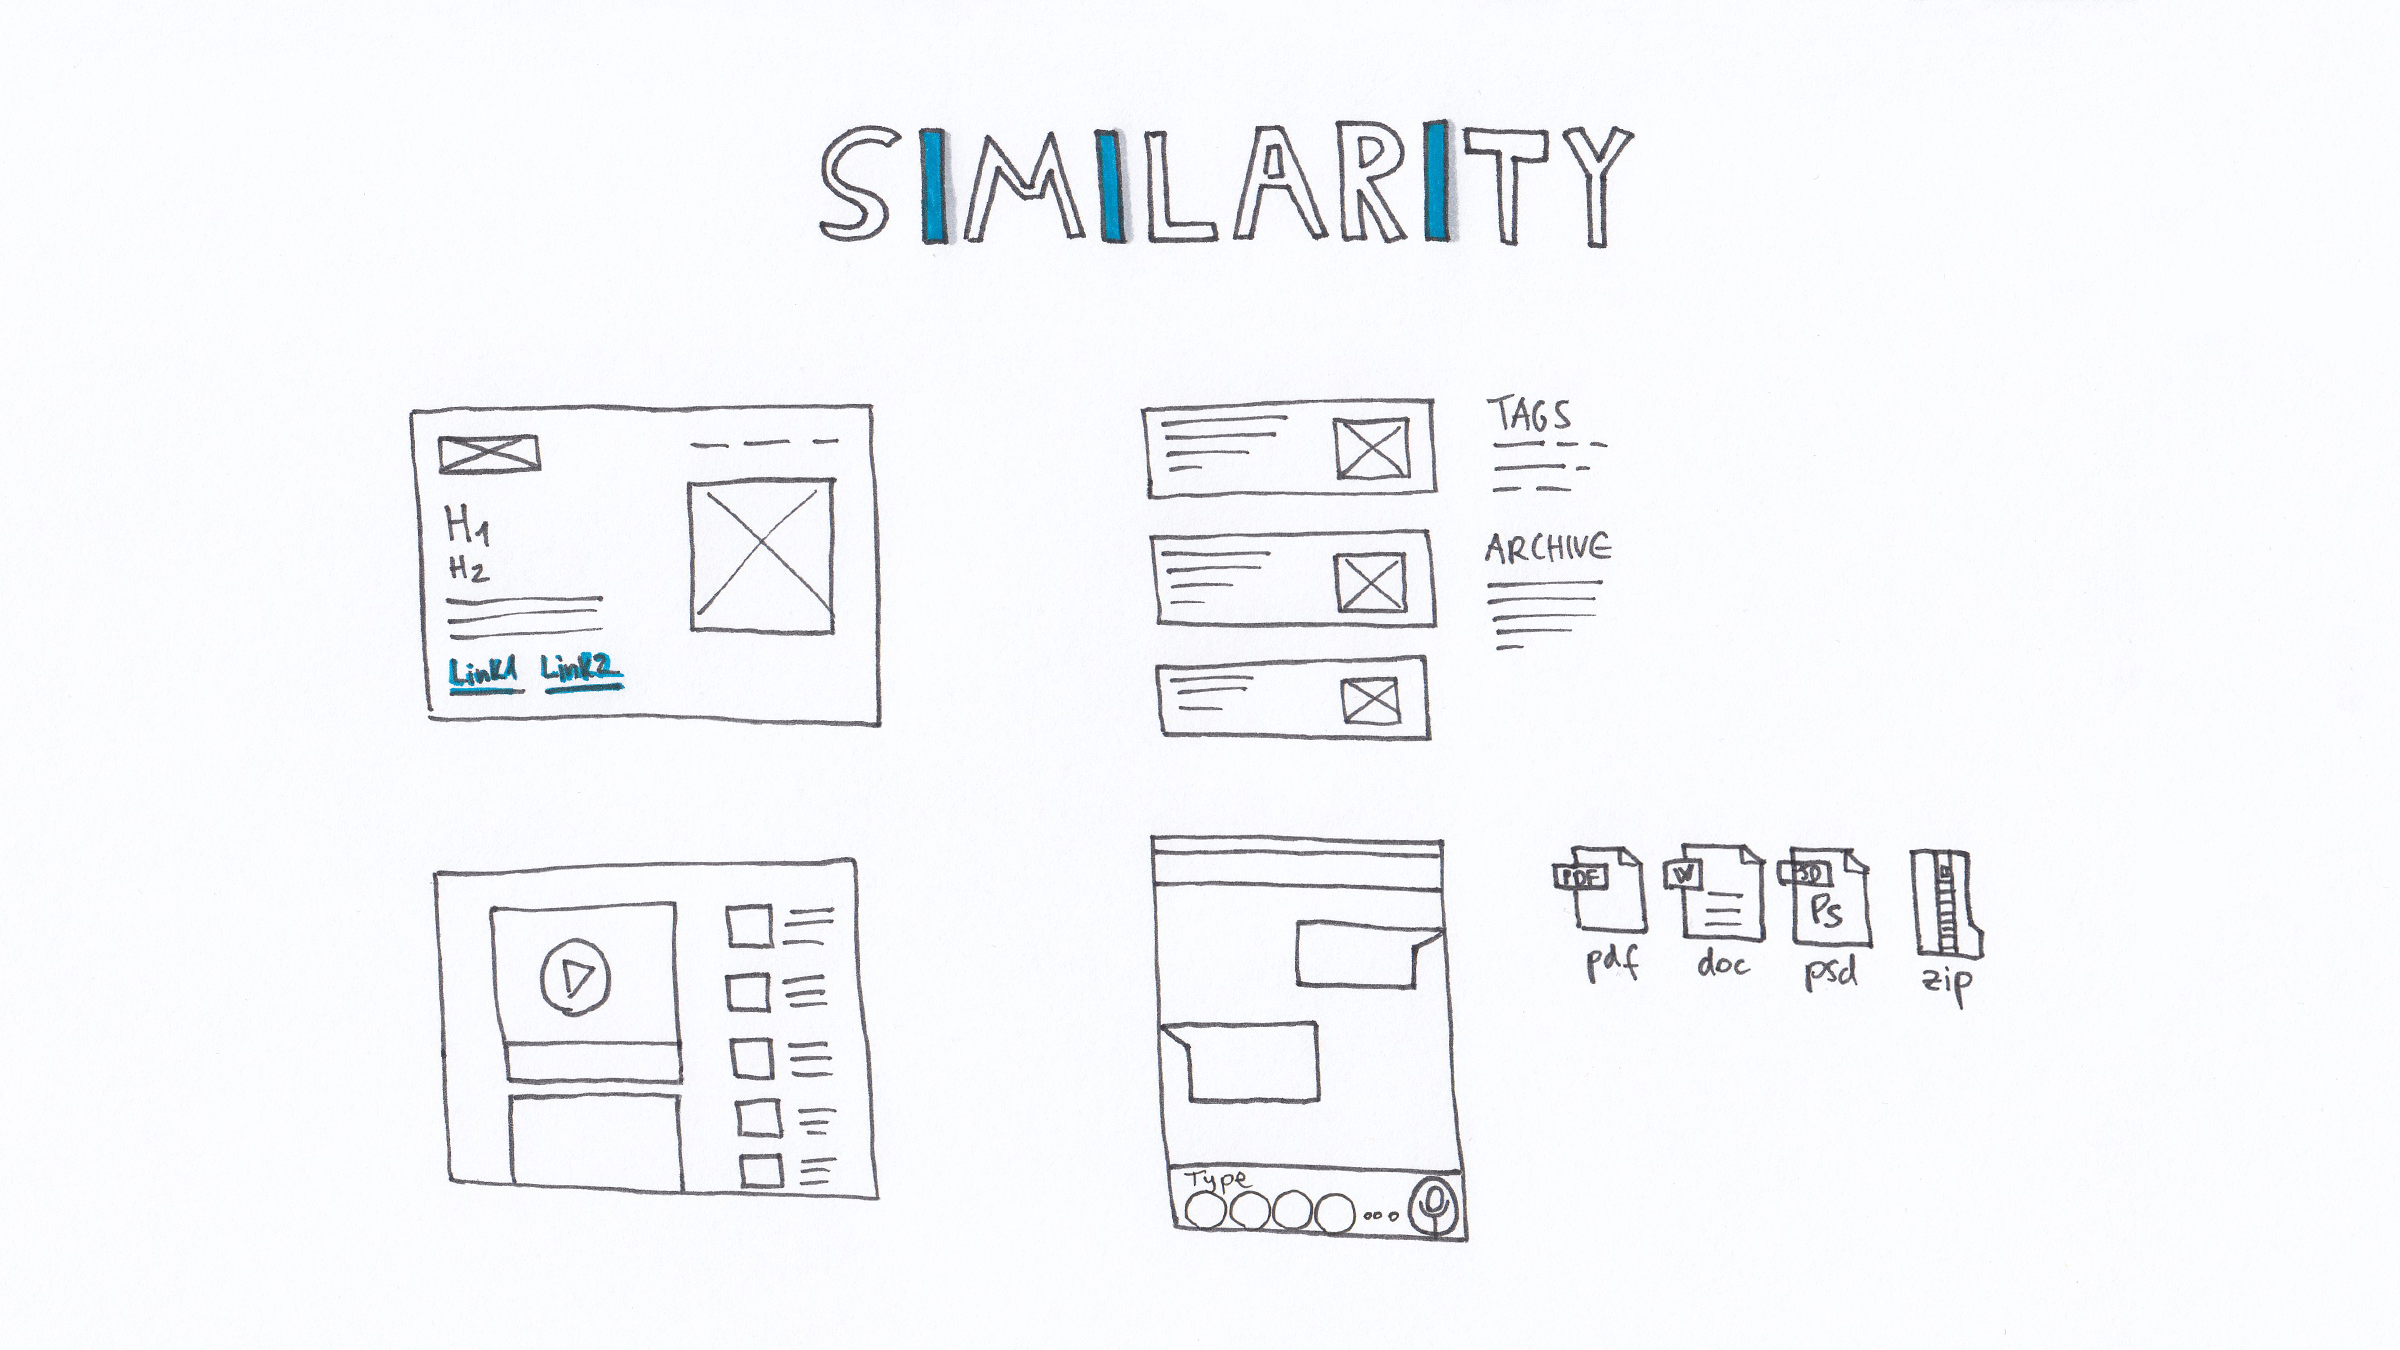 SIMILARITY
H1
H2
Link1 Link2
TAGS
ARCHIVE
Type
PDF
W
Ps
pdf
doc
psd
zip